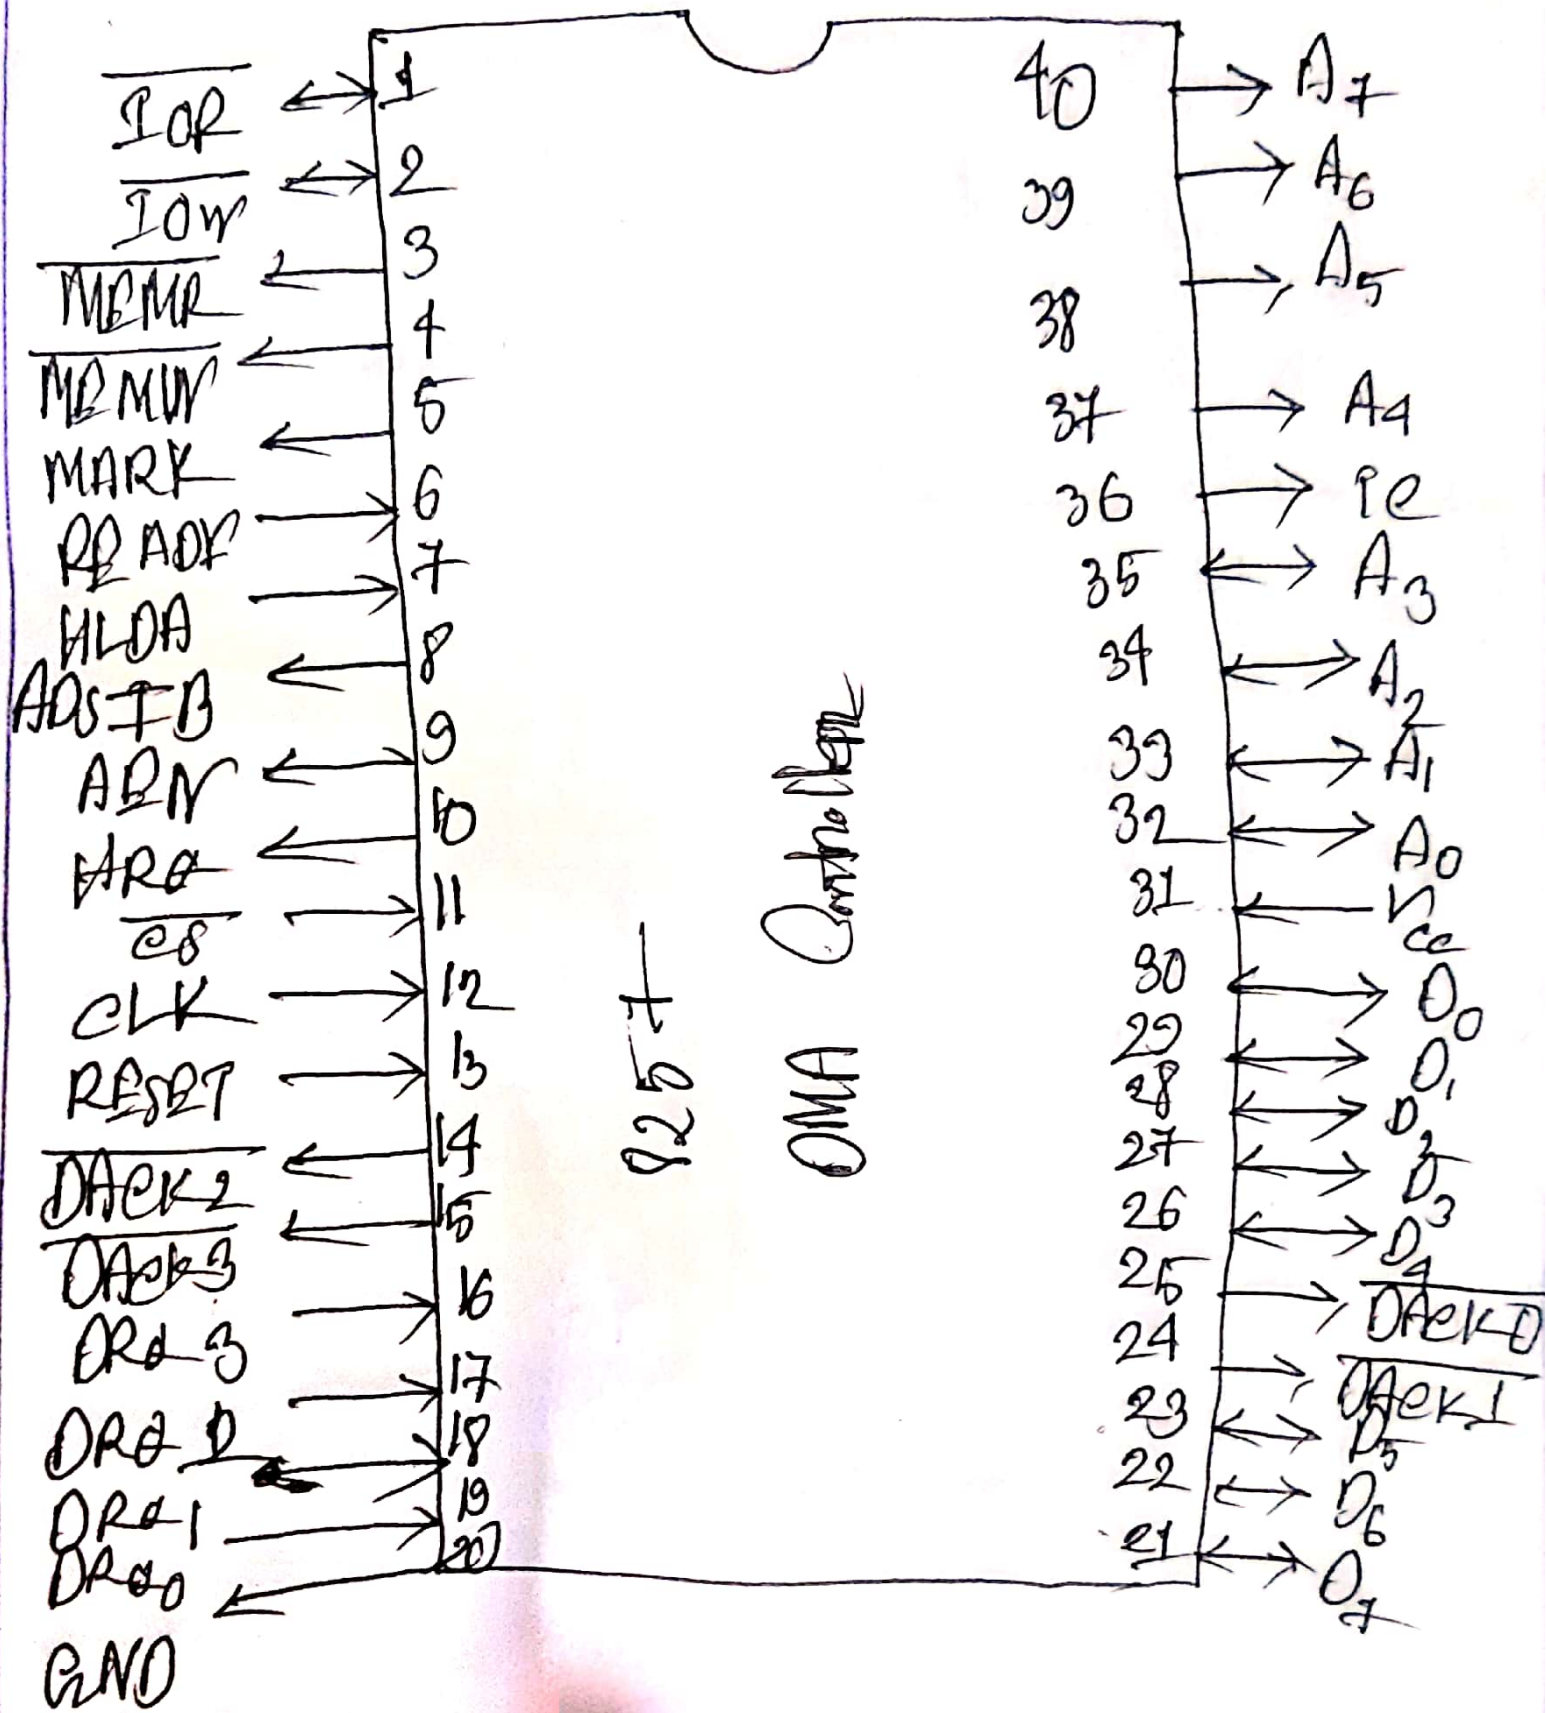 I̅O̅R̅ 1
I̅O̅W̅ 2
M̅E̅M̅R̅ 3
M̅E̅M̅W̅ 4
MARK 5
READY 6
HLDA 7
ADSTB 8
AEN 9
HRQ 10
C̅S̅ 11
CLK 12
RESET 13
D̅A̅C̅K̅2̅ 14
D̅A̅C̅K̅3̅ 15
DRQ 3 16
DRQ 17
DRQ 1 18
DRQ0 19
GND 20
8257
DMA Controller
40 A7
39 A6
38 A5
37 A4
36 TC
35 A3
34 A2
33 A1
32 A0
31 Vcc
30 D0
29 D1
28 D2
27 D3
26 D4
25 D̅A̅C̅K̅0̅
24 D̅A̅C̅K̅1̅
23 D5
22 D6
21 D7